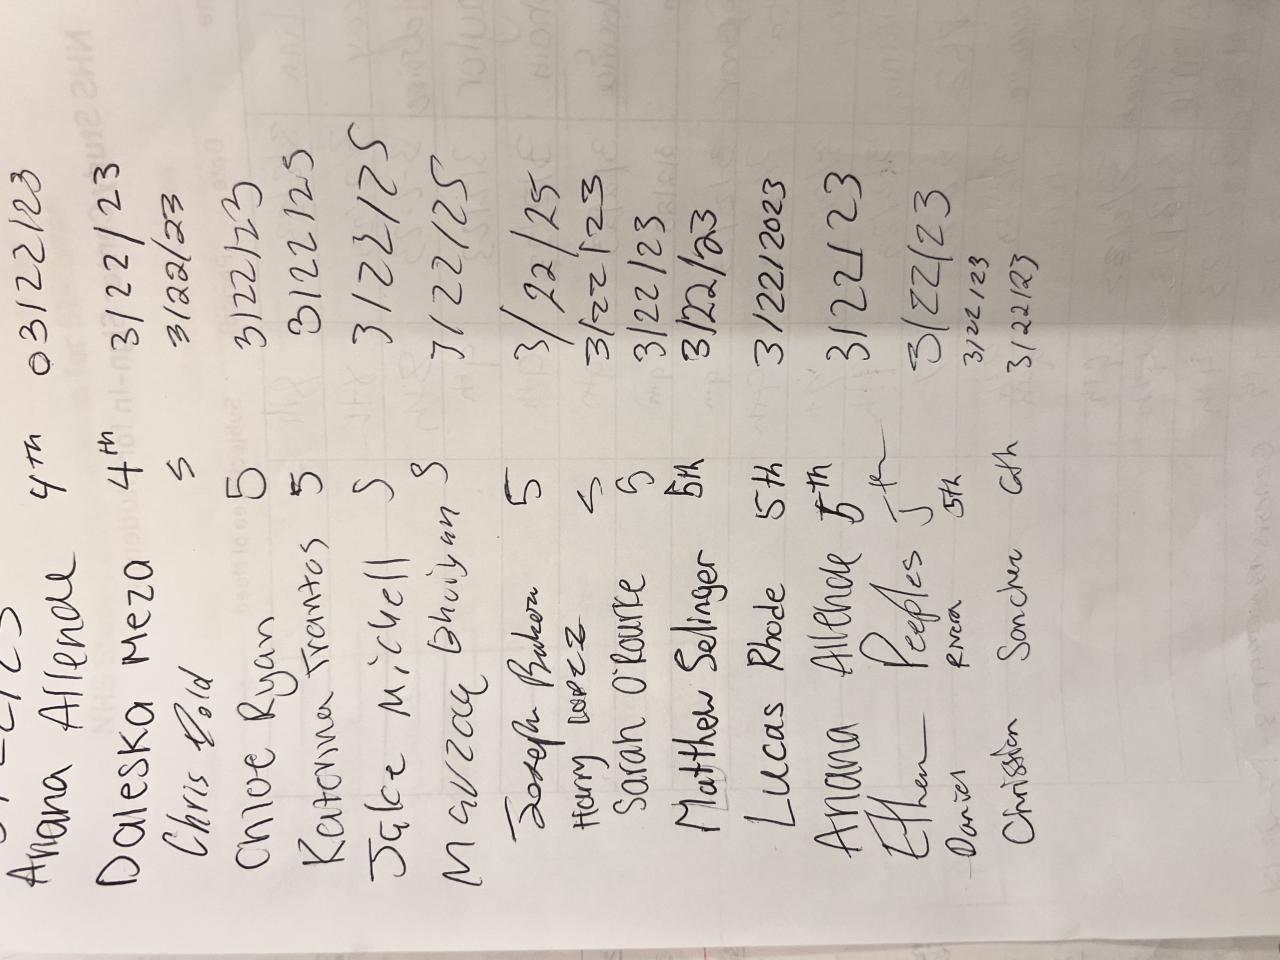 Anana Allende 4th 03/22/23
Daleska Meza 4th 3/22/23
Chris 5 3/22/23
Chloe Ryan 5 3/22/23
Katarina Frantos 5 3/22/23
Jake Michell 5 3/22/25
Marzaq Bhuiyan 5 3/22/25
Joseph 5 3/22/25
Harry Lopez 5 3/22/23
Sarah O'Rourke 5 3/22/23
Matthew Selinger 5th 3/22/23
Lucas Rhode 5th 3/22/2023
Anana Allende 5th 3/22/23
Ethan Peeples 5th 3/22/23
Daniel Rivera 5th 3/22/23
Christian Sanchez 6th 3/22/23